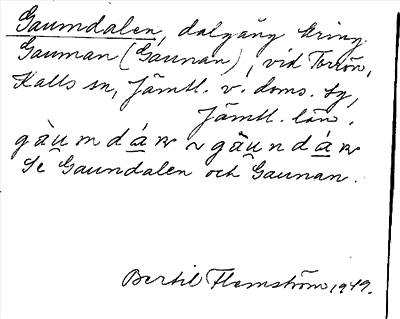 Gaumdalen, dalgång kring
Gauman (Gaunan), vid Torrön,
Kalls sn, Jämtl. v. doms. sg,
Jämtl. län.
Se Gaundalen och Gaunan.
Bertil Flemström 1949.